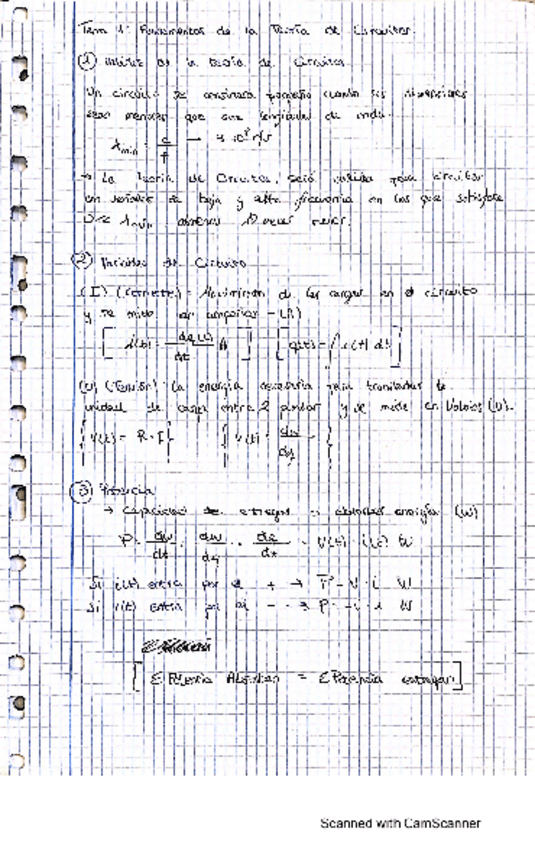 Tema 1: Fundamentos de la Teoría de Circuitos.
① de la teoría de Circuitos
Un circuito se considera pequeño cuando sus dimensiones
sean menores que una longitud de onda.
λmin = c/f → 3·10⁸ m/s
→ La Teoría de Circuitos, será válida para circuitos
con señales de baja y alta frecuencia en los que satisface
D << λmin 10 veces menor.
② Variables de Circuito
(I) (Corriente): Movimiento de las cargas en el circuito
y se mide en amperios - (A)
[ i(t) = dq(t)/dt A ] [ q(t) = ∫ i(t) dt ]
(V) (Tensión): La energía necesaria para trasladar la
unidad de carga entre 2 puntos y se mide en Voltios (V).
{ V(t) = R·I } { V(t) = dw/dq }
③ Potencia
→ Capacidad de entregar o absorber energía (W)
P = dw/dt = dw/dq · dq/dt = V(t) · i(t) W
Si i(t) entra por el + → P = V · i W
Si i(t) entra por el - → P = -V · i W
[ Σ Potencia Absorbida = Σ Potencia entregada ]
Scanned with CamScanner